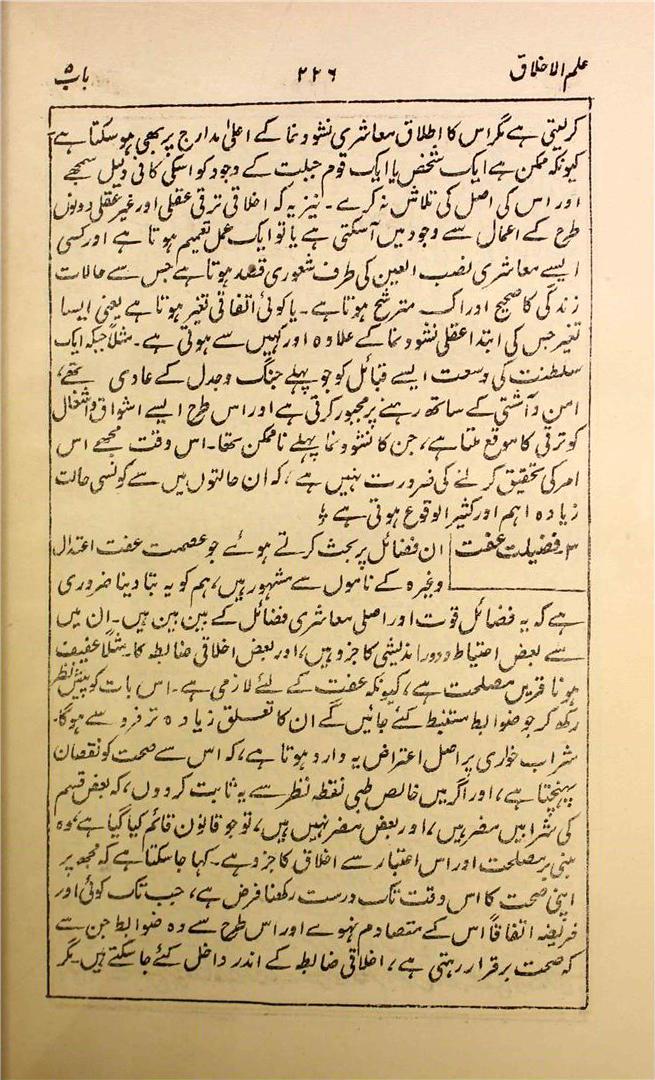 علم الاخلاق ۲۲۶ باب ۵
کرلیتی ہے مگر اس کا اطلاق معاشری نشوونما کے اعلیٰ مدارج پر بھی ہوسکتا ہے
کیونکہ ممکن ہے ایک شخص یا ایک قوم جبلت کے وجود کو اسکی کافی دلیل سمجھے
اور اس کی اصل کی تلاش نہ کرے ۔ نیز یہ کہ اخلاقی ترقی عقلی اور غیر عقلی دونوں
طرح کے اعمال سے وجود میں آسکتی ہے یا تو ایک عمل تعمیم ہوتا ہے اور کسی
ایسے معاشری نصب العین کی طرف شعوری قصد ہوتا ہے جس سے حالات
زندگی کا صحیح ادراک مترشح ہوتا ہے ۔ یا کوئی اتفاقی تغیر ہوتا ہے یعنی ایسا
تغیر جس کی ابتدا عقلی نشوونما کے علاوہ اور کہیں سے ہوتی ہے ۔ مثلاً جبکہ ایک
سلطنت کی وسعت ایسے قبائل کو جو پہلے جنگ وجدل کے عادی تھے،
امن و آشتی کے ساتھ رہنے پر مجبور کرتی ہے اور اس طرح ایسے اشواق واشغال
کو ترقی کا موقع ملتا ہے، جن کا نشوونما پہلے ناممکن تھا۔ اس وقت مجھے اس
امر کی تحقیق کرنے کی ضرورت نہیں ہے، کہ ان حالتوں میں سے کونسی حالت
زیادہ اہم اور کثیر الوقوع ہوتی ہے ؛
۳۔ فضیلت عفت ان فضائل پر بحث کرتے ہوئے جو عصمت عفت اعتدال
وغیرہ کے ناموں سے مشہور ہیں، ہم کو یہ بتا دینا ضروری
ہے کہ یہ فضائل قوت اور اصلی معاشری فضائل کے بین بین ہیں۔ ان میں
سے بعض احتیاط و دوراندیشی کا جزو ہیں، اور بعض اخلاقی ضابطہ کا۔ مثلاً عفیف
ہونا قرین مصلحت ہے، کیونکہ عفت کے لئے لازمی ہے ۔ اس بات کو پیش نظر
رکھ کر جو ضوابط مستنبط کئے جائیں گے ان کا تعلق زیادہ تر فرد سے ہوگا۔
شراب خواری پر اصل اعتراض یہ وارد ہوتا ہے، کہ اس سے صحت کو نقصان
پہنچتا ہے، اور اگر میں خالص طبی نقطۂ نظر سے یہ ثابت کردوں، کہ بعض قسم
کی شرابیں مضر ہیں، اور بعض مضر نہیں ہیں، تو جو قانون قائم کیا گیا ہے، وہ
مبنی بر مصلحت اور اس اعتبار سے اخلاق کا جزو ہے ۔ کہا جاسکتا ہے کہ مجھ پر
اپنی صحت کا اس وقت تک درست رکھنا فرض ہے، جب تک کوئی اور
فریضہ اتفاقاً اس کے متصادم نہوے اور اس طرح سے وہ ضوابط جن سے
کہ صحت برقرار رہتی ہے، اخلاقی ضابطہ کے اندر داخل کئے جاسکتے ہیں۔ مگر